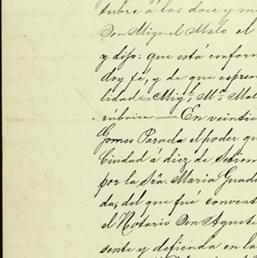 tubre á las doce y m
Don Miguel Malo el
y dijo: que está conform
doy fé, y de que espres
lidad = Mig.l M.a Mal
rúbrica — En veintici
Gomes Parada el poder qu
Ciudad á diez de Setiem
por la Sra. Maria Guad
da, del que fué convent
el Notario Don Agusti
sente y defienda en la